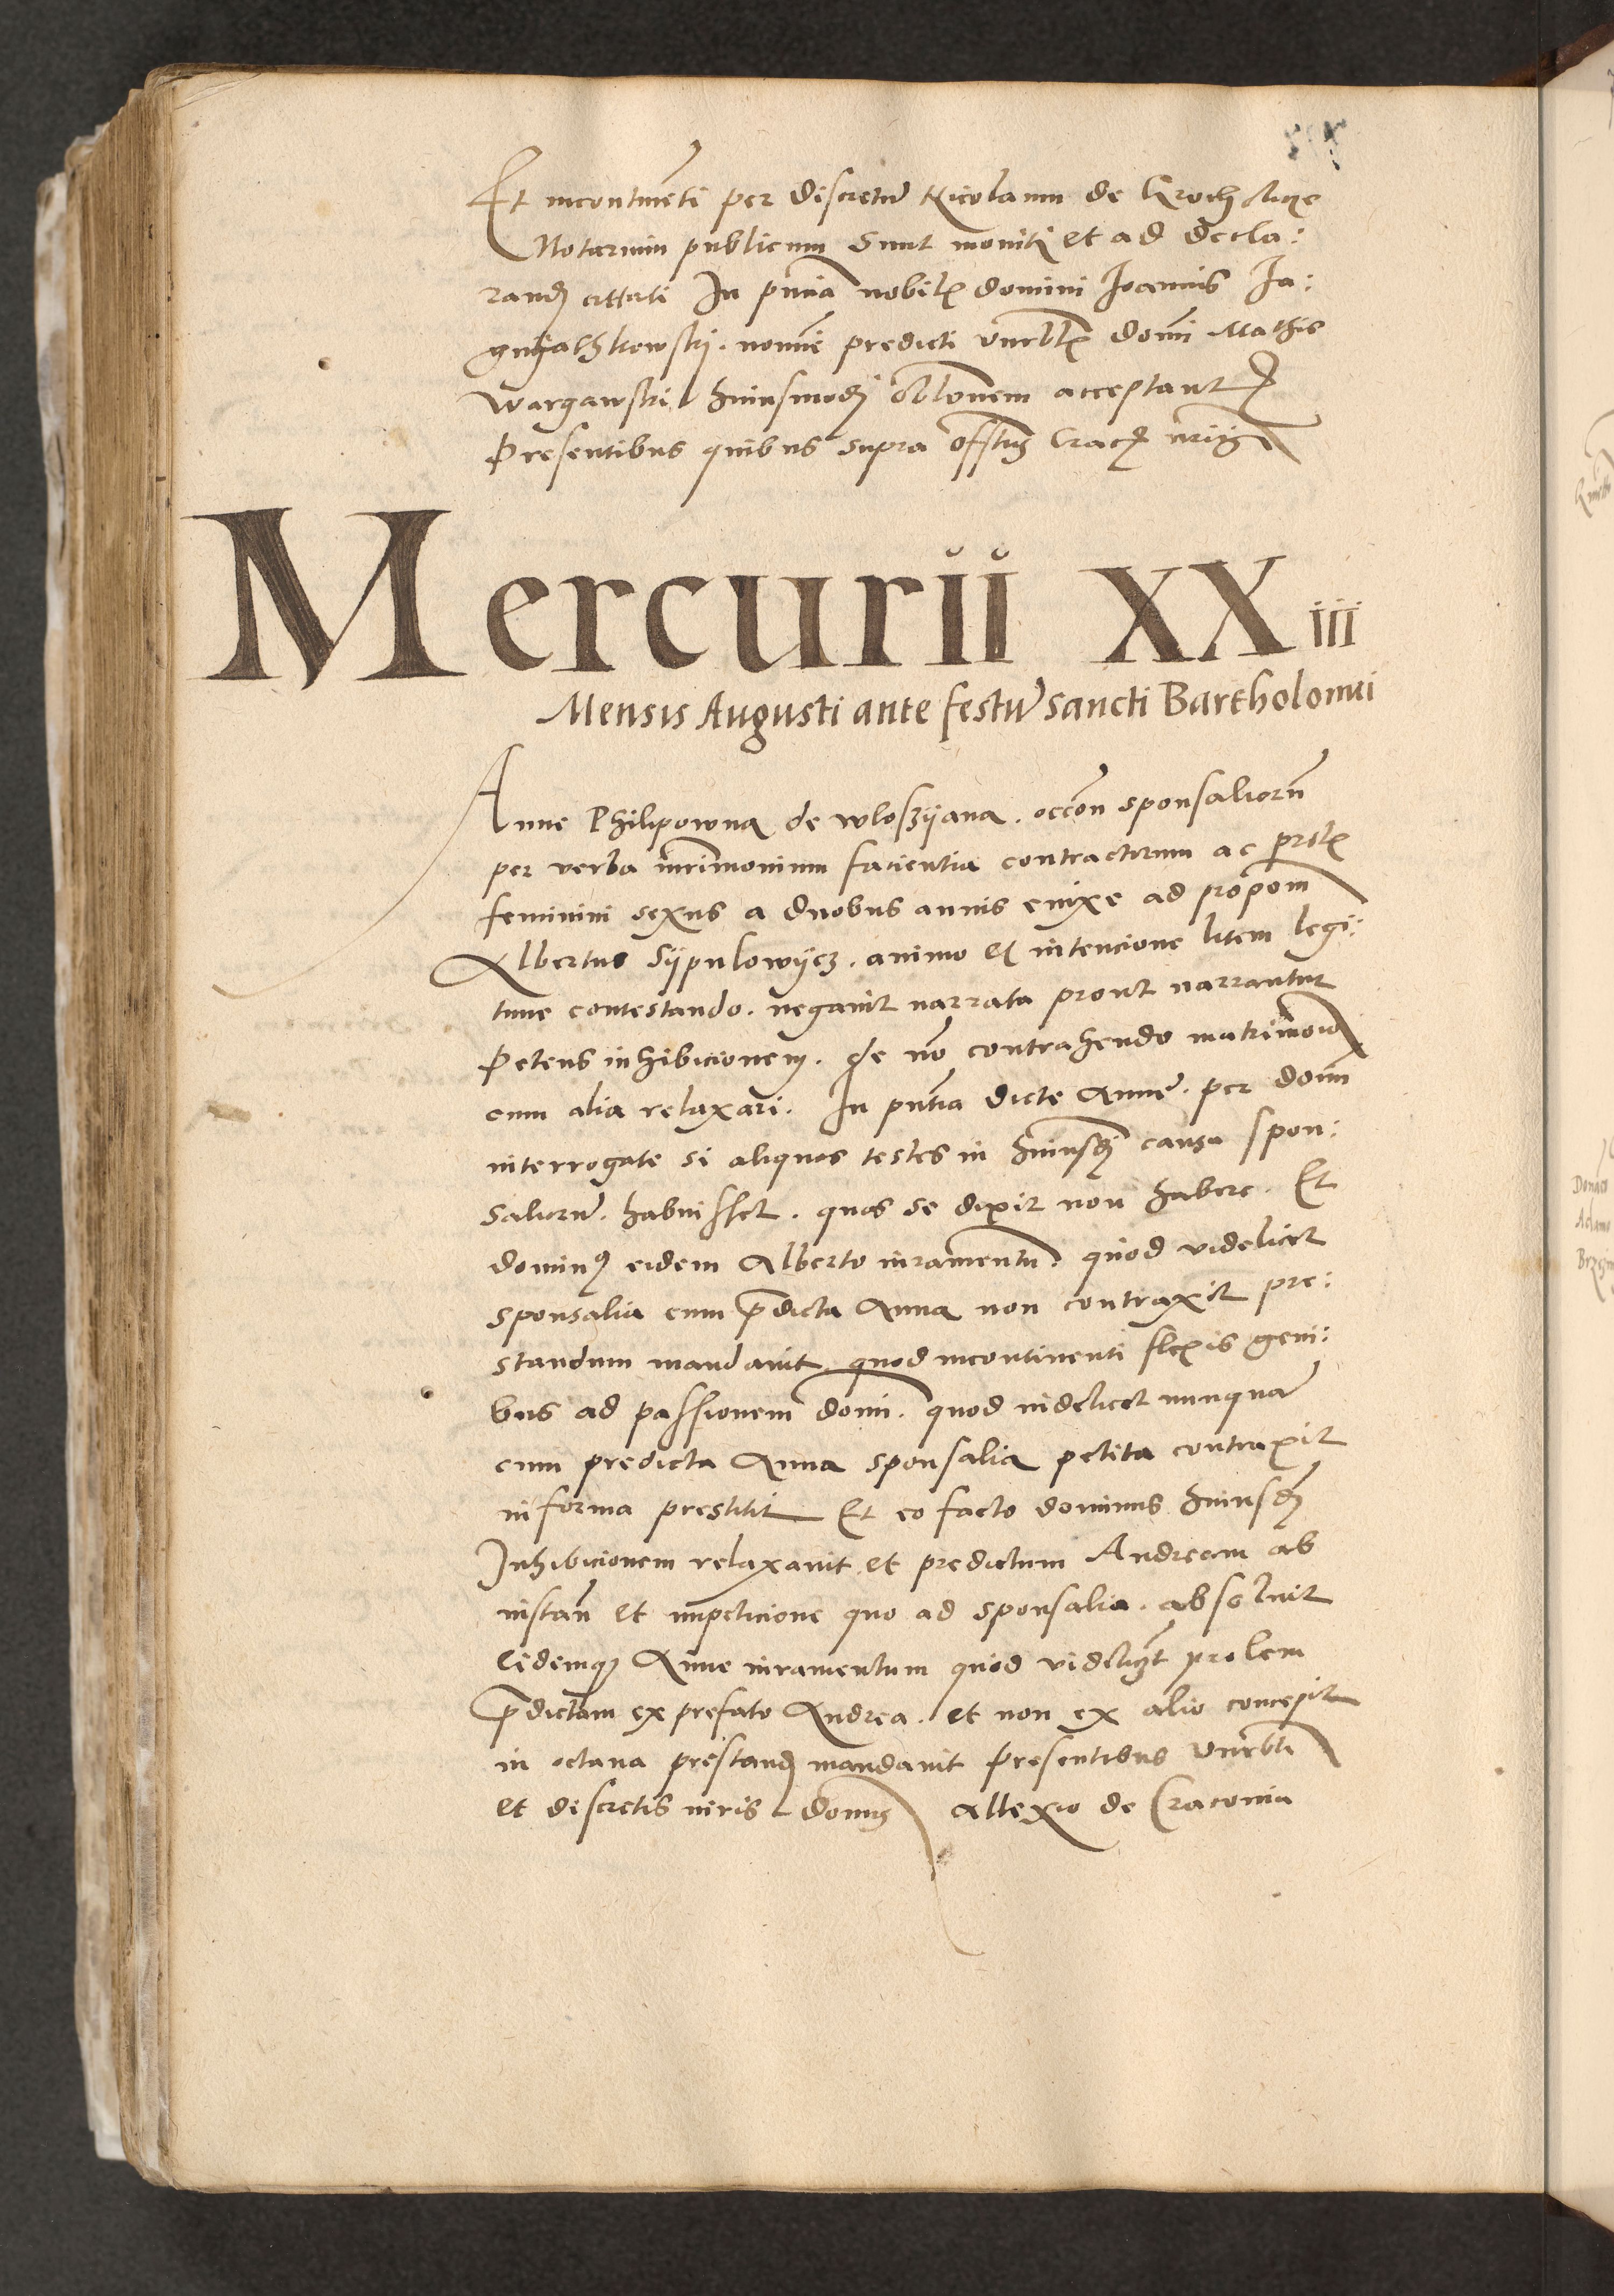 Et incontine͂ti per discretu͂ Nicolaum de
Notarium publicum sunt moniti et ad decla:
rand citati In pn̄cia nobil domini Joannis Ja:
nomine predicti vnrbl domi Mathie
Wargawski huiusmodi oblonem acceptant
Presentibus quibus supra Crac
Mercurii XXiii
Mensis Augusti ante festu͂ sancti Bartholomei
Anne Philipowna de wloszijana . occōn sponsaliorū
per verba mr̄imonium facientia contractorum ac prol
feminini sexus a duobus annis enixe ad prōpom̄
Albertus Sijpulowijcz . animo et intencione litem legi:
time contestando . negauit narrata prout narrantur
Petens inhibicionem . de nō contrahendo matrimōio
cum alia relaxari . In pn̄tia dicte Anne . per dom̄
interrogate si aliquos testes in huiusd causa spon:
saliorū . habuisset . quos se dixit non habere . Et
dominus eidem Alberto iuramentū . quod videlicet
sponsalia cum p̄dicta Anna non contraxit pre:
standum mandauit . quod incontinenti flexis geni:
bus ad passionem domi . quod videlicet nunquā
cum predicta Anna sponsalia petita contraxit
in forma prestitit Et eo facto dominus huiusd
Inhibicionem relaxauit et predictum Andream ab
instan̄ et impeticione quo ad sponsalia . absoluit
Eidemque Anne iuramentum quod videlicet prolem
p̄dictam ex prefato Andrea . et non ex alio concepit
in octaua prestand mandauit Presentibus vnrbli
et discretis viris domis Allexio de Cracouia